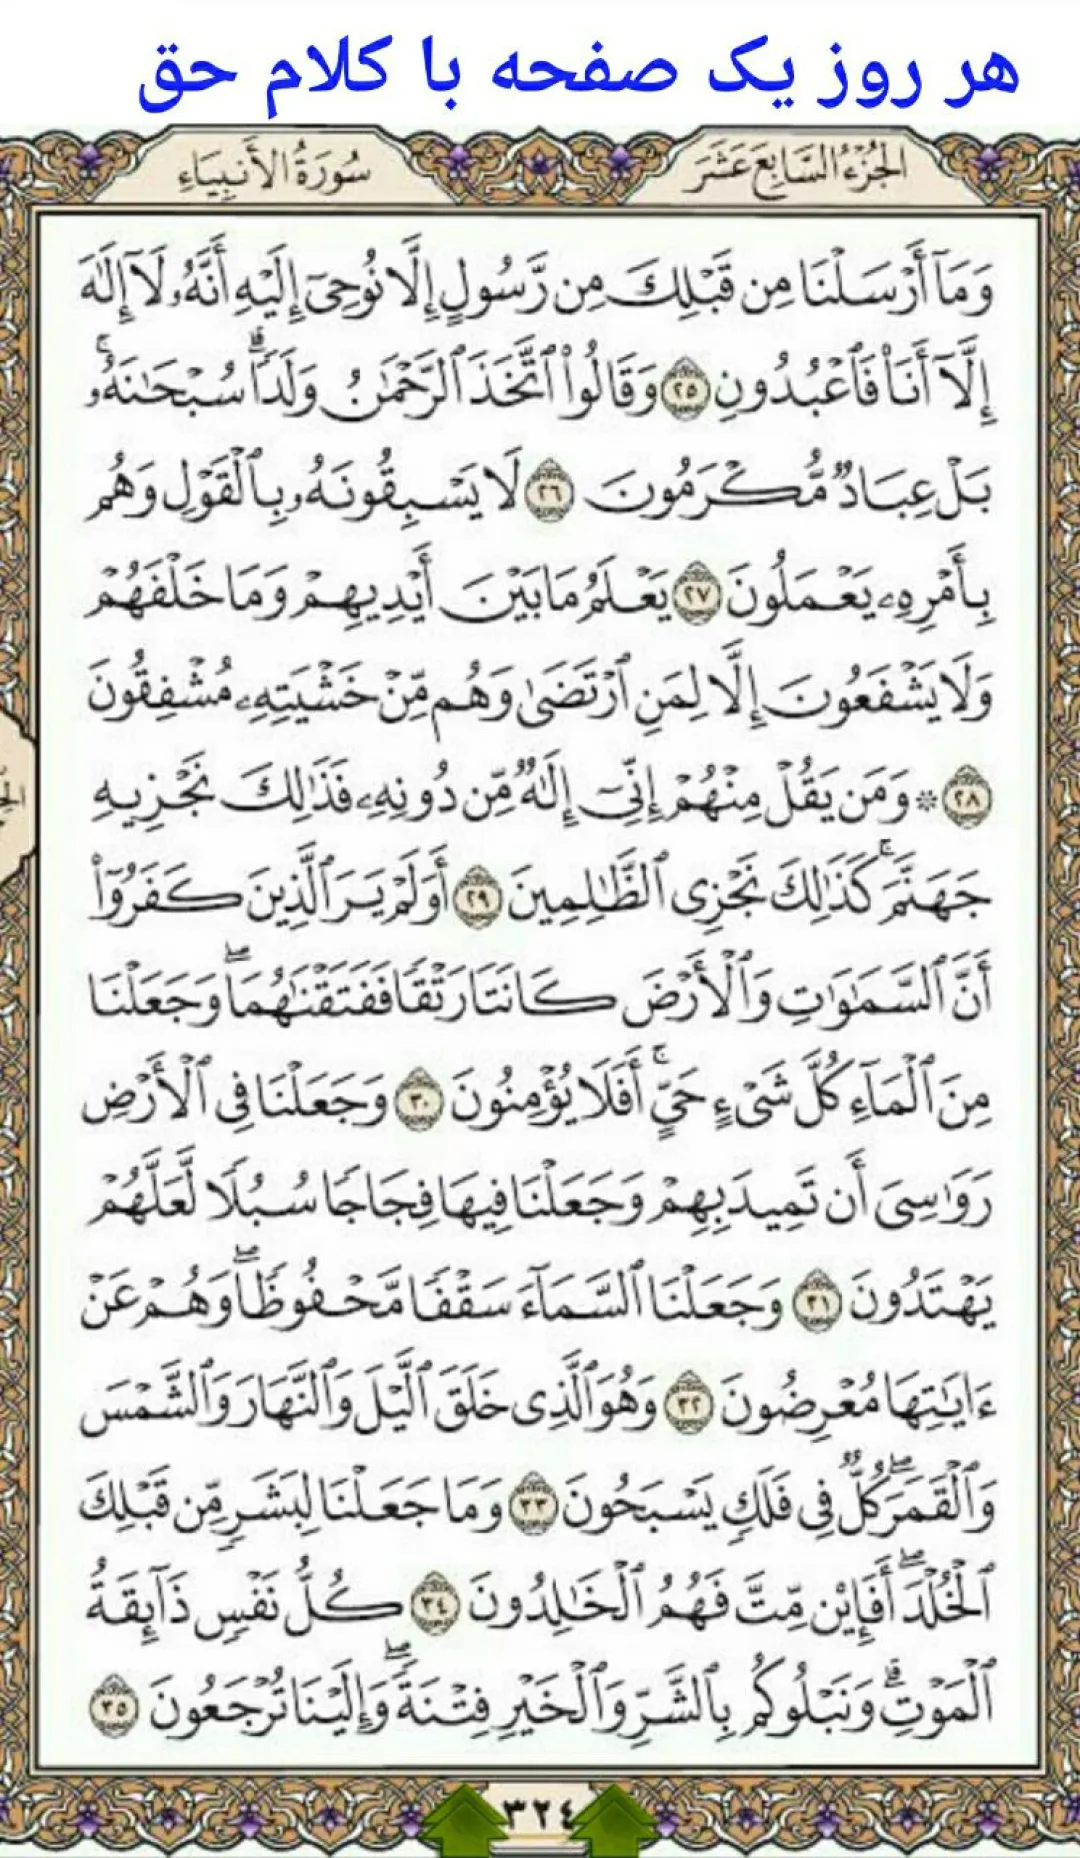 هر روز یک صفحه با کلام حق
الجُزْءُ السَّابِعَ عَشَرَ
سُورَةُ الأَنبِيَاءِ
وَمَآ أَرْسَلْنَا مِن قَبْلِكَ مِن رَّسُولٍ إِلَّا نُوحِىٓ إِلَيْهِ أَنَّهُۥ لَآ إِلَٰهَ
إِلَّآ أَنَا۠ فَٱعْبُدُونِ ٢٥ وَقَالُوا۟ ٱتَّخَذَ ٱلرَّحْمَٰنُ وَلَدًاۗ سُبْحَٰنَهُۥۚ
بَلْ عِبَادٌ مُّكْرَمُونَ ٢٦ لَا يَسْبِقُونَهُۥ بِٱلْقَوْلِ وَهُم
بِأَمْرِهِۦ يَعْمَلُونَ ٢٧ يَعْلَمُ مَا بَيْنَ أَيْدِيهِمْ وَمَا خَلْفَهُمْ
وَلَا يَشْفَعُونَ إِلَّا لِمَنِ ٱرْتَضَىٰ وَهُم مِّنْ خَشْيَتِهِۦ مُشْفِقُونَ
٢٨ ۞ وَمَن يَقُلْ مِنْهُمْ إِنِّىٓ إِلَٰهٌ مِّن دُونِهِۦ فَذَٰلِكَ نَجْزِيهِ
جَهَنَّمَۚ كَذَٰلِكَ نَجْزِى ٱلظَّٰلِمِينَ ٢٩ أَوَلَمْ يَرَ ٱلَّذِينَ كَفَرُوٓا۟
أَنَّ ٱلسَّمَٰوَٰتِ وَٱلْأَرْضَ كَانَتَا رَتْقًا فَفَتَقْنَٰهُمَاۖ وَجَعَلْنَا
مِنَ ٱلْمَآءِ كُلَّ شَىْءٍ حَىٍّۚ أَفَلَا يُؤْمِنُونَ ٣٠ وَجَعَلْنَا فِى ٱلْأَرْضِ
رَوَٰسِىَ أَن تَمِيدَ بِهِمْ وَجَعَلْنَا فِيهَا فِجَاجًا سُبُلًا لَّعَلَّهُمْ
يَهْتَدُونَ ٣١ وَجَعَلْنَا ٱلسَّمَآءَ سَقْفًا مَّحْفُوظًاۖ وَهُمْ عَنْ
ءَايَٰتِهَا مُعْرِضُونَ ٣٢ وَهُوَ ٱلَّذِى خَلَقَ ٱلَّيْلَ وَٱلنَّهَارَ وَٱلشَّمْسَ
وَٱلْقَمَرَۖ كُلٌّ فِى فَلَكٍ يَسْبَحُونَ ٣٣ وَمَا جَعَلْنَا لِبَشَرٍ مِّن قَبْلِكَ
ٱلْخُلْدَۖ أَفَإِي۟ن مِّتَّ فَهُمُ ٱلْخَٰلِدُونَ ٣٤ كُلُّ نَفْسٍ ذَآئِقَةُ
ٱلْمَوْتِۗ وَنَبْلُوكُم بِٱلشَّرِّ وَٱلْخَيْرِ فِتْنَةًۖ وَإِلَيْنَا تُرْجَعُونَ ٣٥
٣٢٤